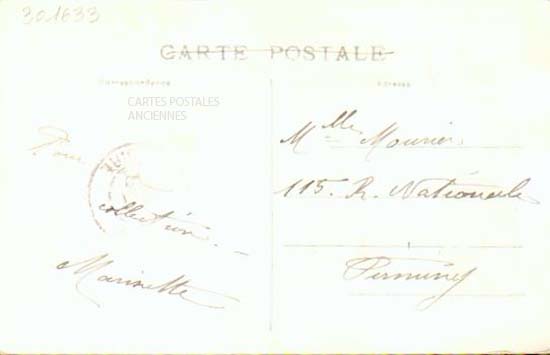 301633
CARTE POSTALE
Correspondance
Adresse
CARTES POSTALES
ANCIENNES
Pour votre
collection
Marinette
Mlle Mounier
115. R. Nationale